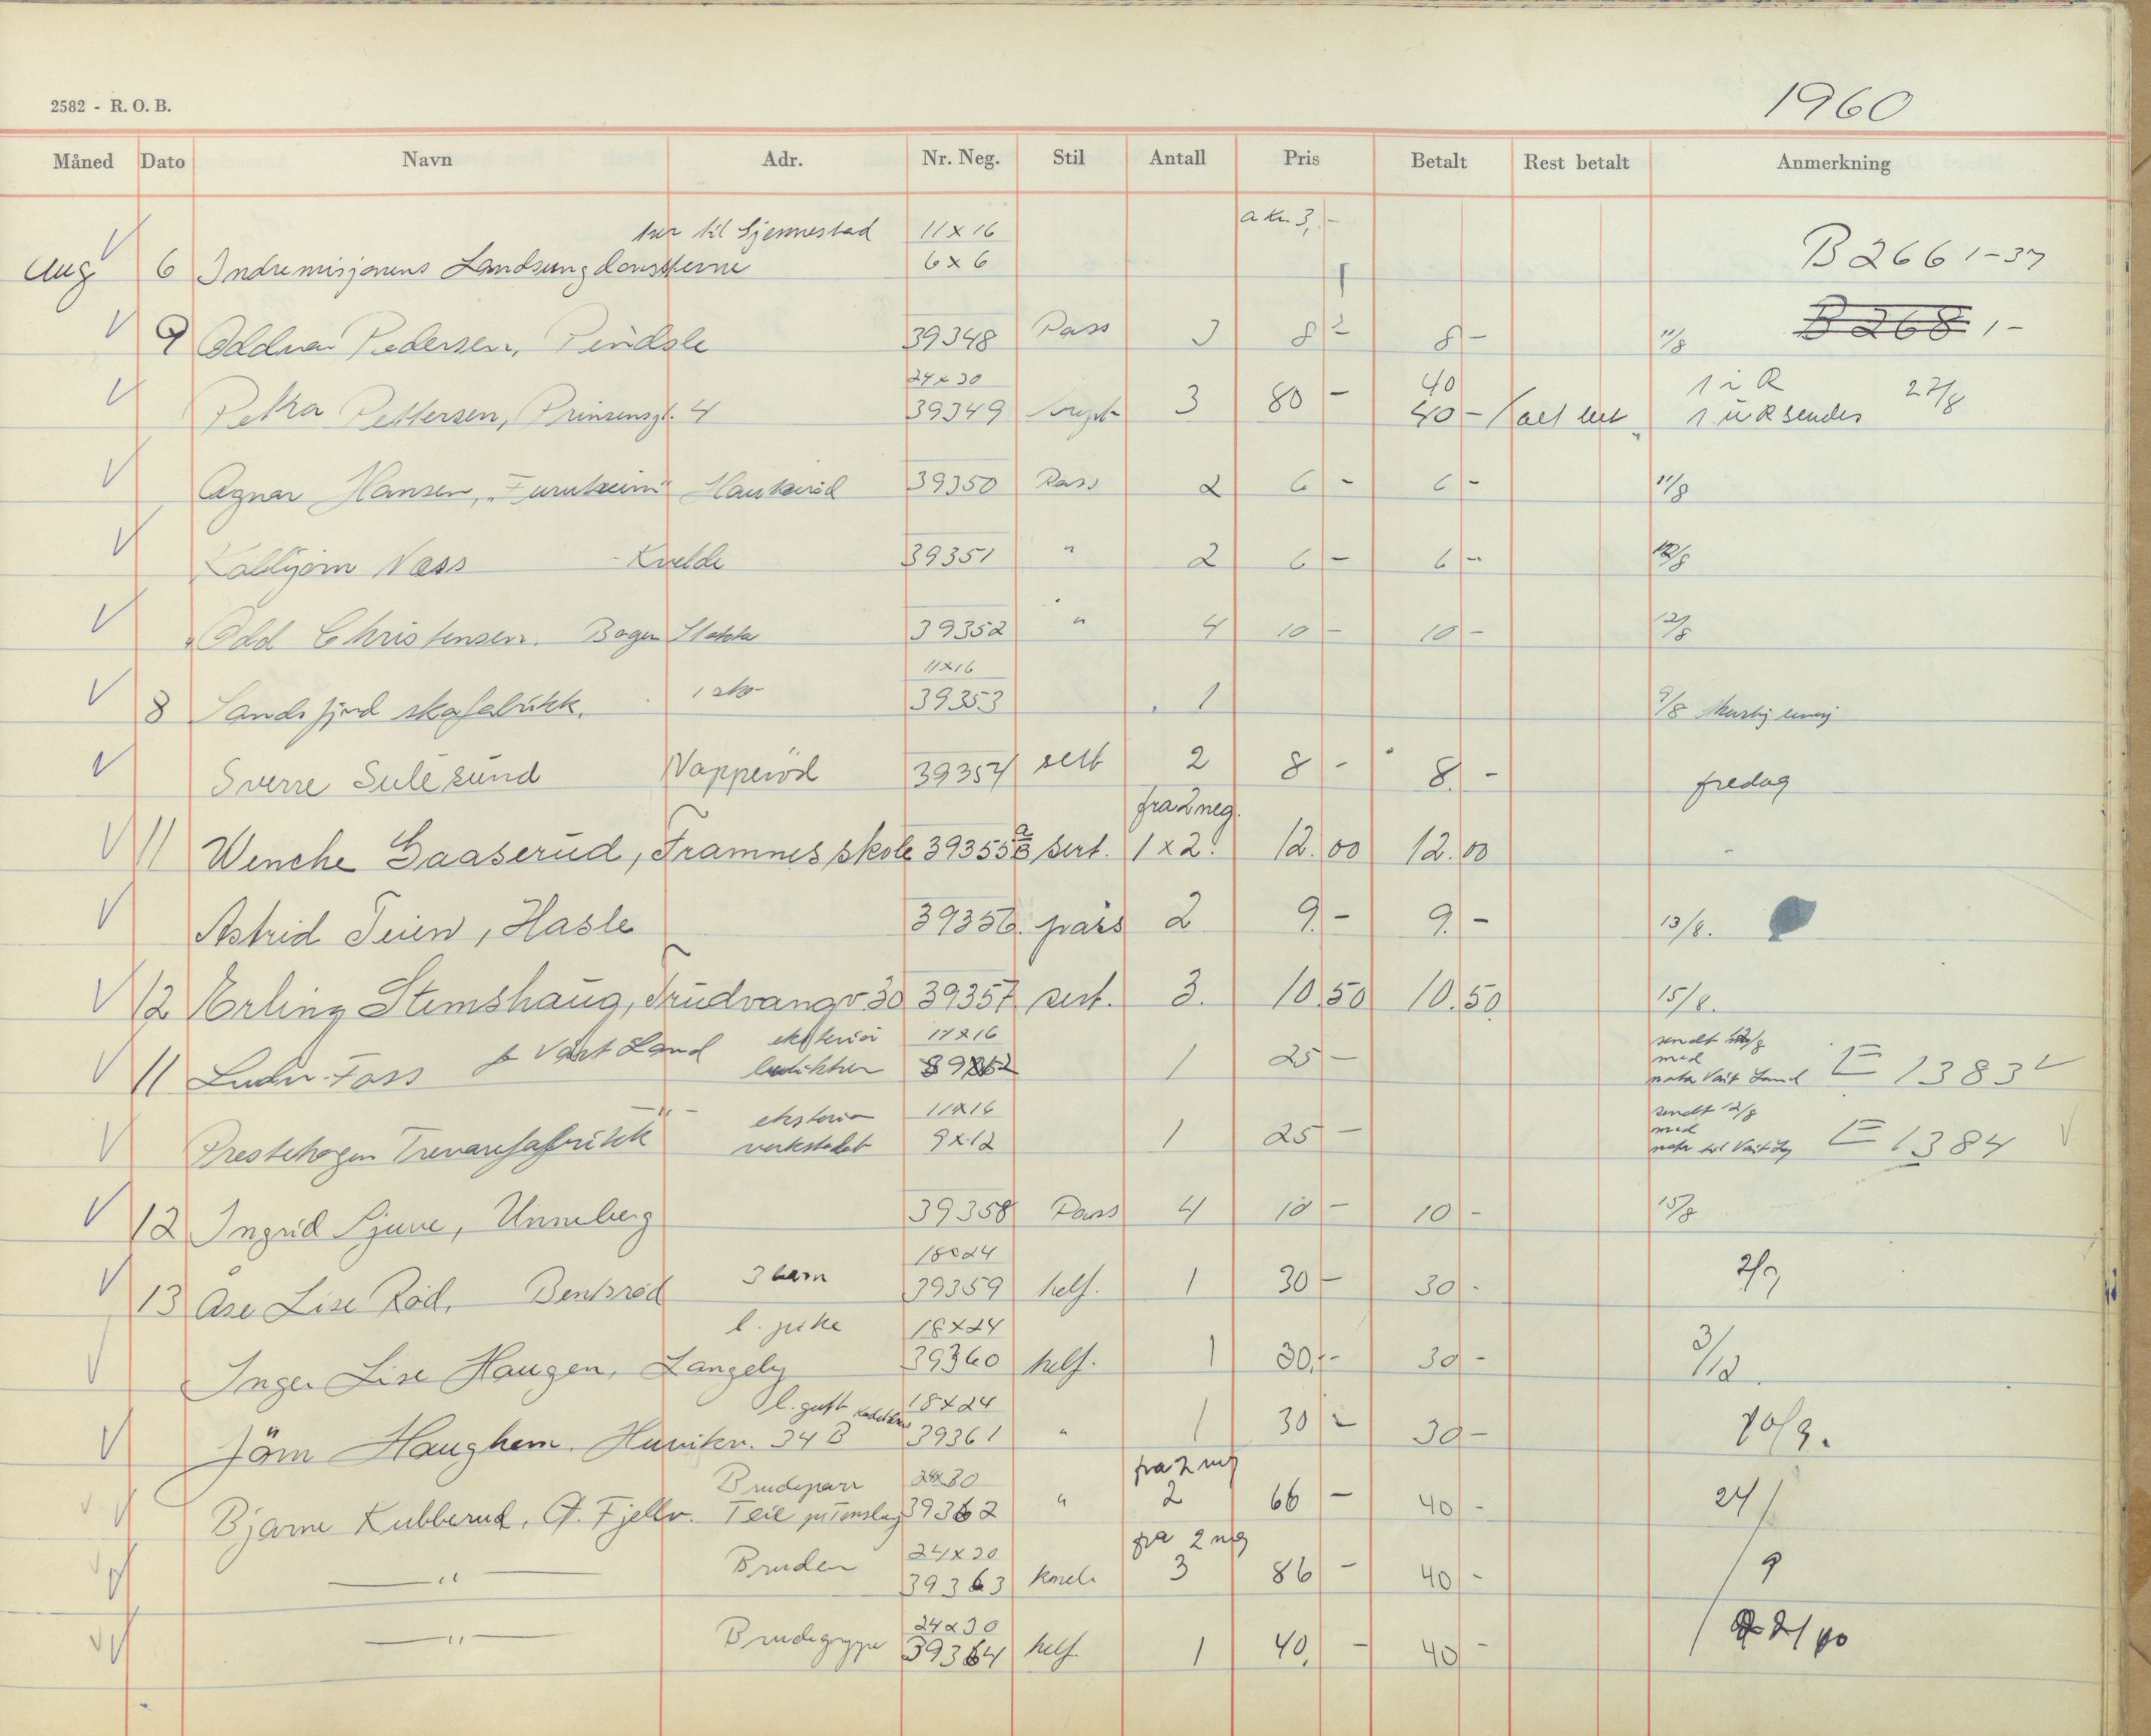 1960
2582 - R. O. B.
Måned Dato Navn Adr. Nr. Neg. Stil Antall Pris Betalt Rest betalt Anmerkning
tur til Gjennestad 11x16 a kr. 3,-
Aug 6 Indremisjonens 6x6 B 266 1-37
9 Pedersen, Pindsle 39348 Pass 3 8 - 8 - 11/8 B 268 1-
24x30 40 1 i R 27/8
Petra Pettersen, Prinsensgt. 4 39349 3 80 - 40 - 1 u R sendes
Agnar Hansen, "Furuheim" Haukerød 39350 Pass 2 6 - 6 - 11/8
Kolbjørn Næss - Kvelde 39351 " 2 6 - 6 - 12/8
Odd Christensen. Bogen Stokke 39352 " 4 10 - 10 - 12/8
11x16
8 Sandefjord skofabrikk. 1 sko 39353 1 9/8
Sverre Sulesund Napperød 39354 sert 2 8 - 8. - fredag
fra 2 neg.
11 Wenche Gaaserud, Framnes skole 39355 a B sert. 1 x 2. 12.00 12.00
Astrid Teien, Hasle 39356. pass 2 9. - 9. - 13/8.
12 Erling Stemshaug, Trudvangv. 30 39357 sert. 3. 10.50 10.50 15/8.
eksteriør 11x16 sendt 12/8
11 Ludv. Foss f Vårt Land butikken 1 25 - med E 1383
nota Vårt Land
-"- eksteriør 11x16 sendt 12/8
Prestehagen Trevarefabrikk verkstedet 9x12 1 25 - med E 1384
12 Ingrid Sjuve, Unneberg 39358 Pass 4 10 - 10 - 15/8
3 barn 18x24
13 Åse Lise Rød, Bentsrød 39359 helf. 1 30 - 30 - 2/9
l. pike 18x24
Inger Lise Haugen, Langeby 39360 helf. 1 30,- 30 - 3/12
l. gutt 18x24
Jörn Haughem. Hunikv. 34 B 39361 " 1 30 - 30 - 10/9.
Brudepar 24x30 fra 2 neg
Bjarne Kubberud, Fjellv. Teie pr Tønsberg 39362 " 2 66 - 40 - 24/
Bruden 24x30 fra 2 neg
-"- 39363 knel. 3 86 - 40 - 9
Brudegruppe 24x30
-"- 39364 helf 1 40, - 40 - 2/10